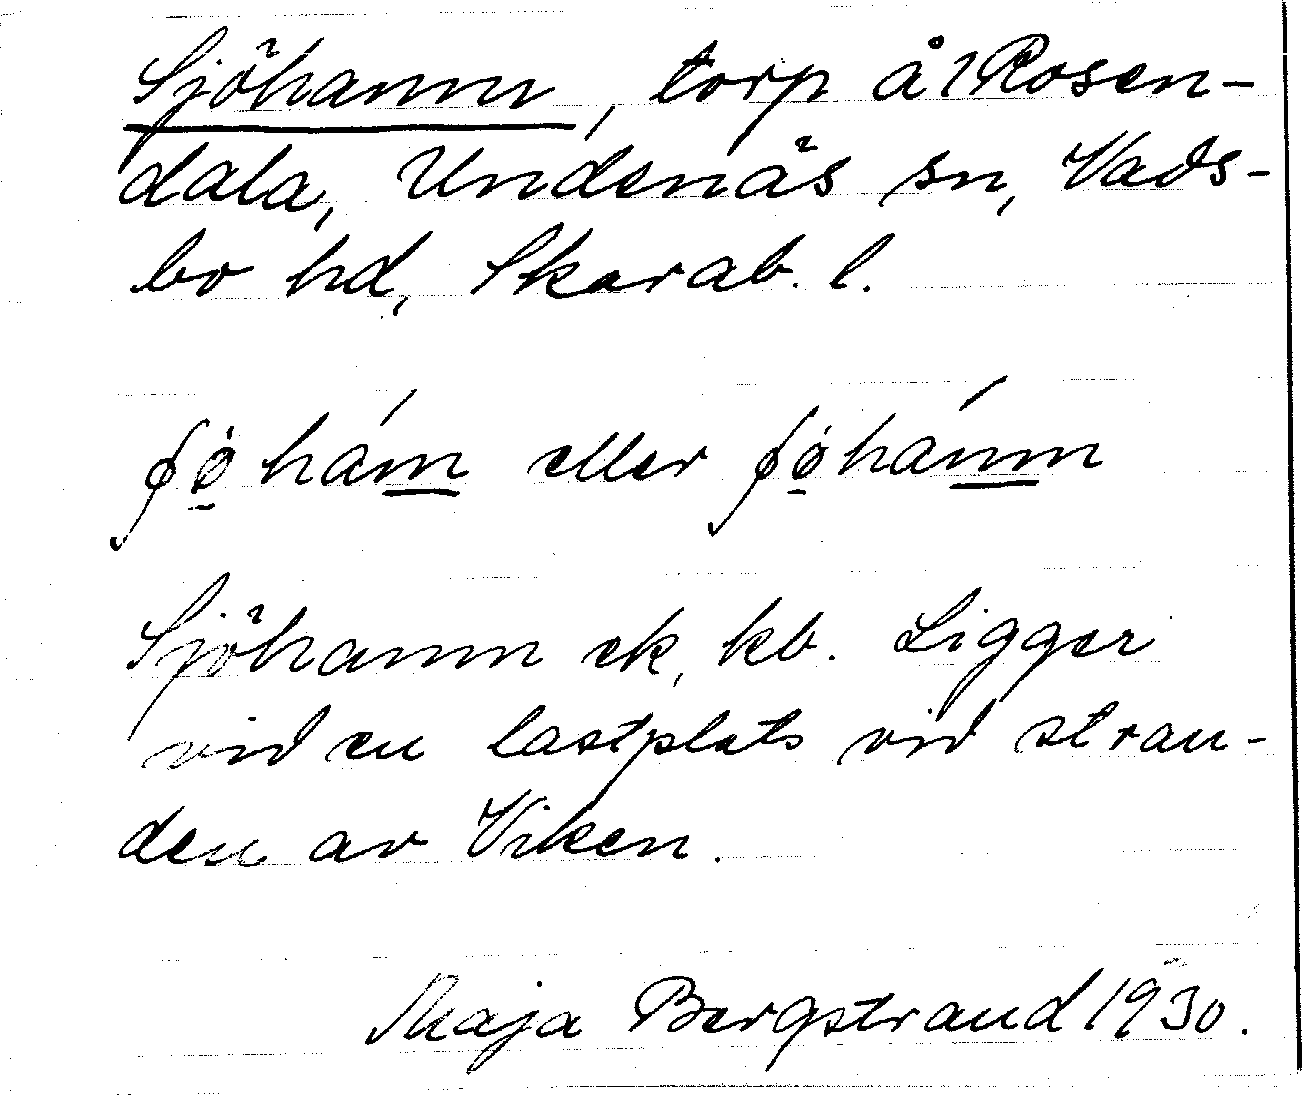 Sjöhamn, torp å 1 Rosen-
dala, Undenäs sn, Vads-
bo hd, Skarab. l.
eller
Sjöhamn ek, kb. Ligger
vid en lastplats vid stran-
den av Viken.
Maja Bergstrand 1930.